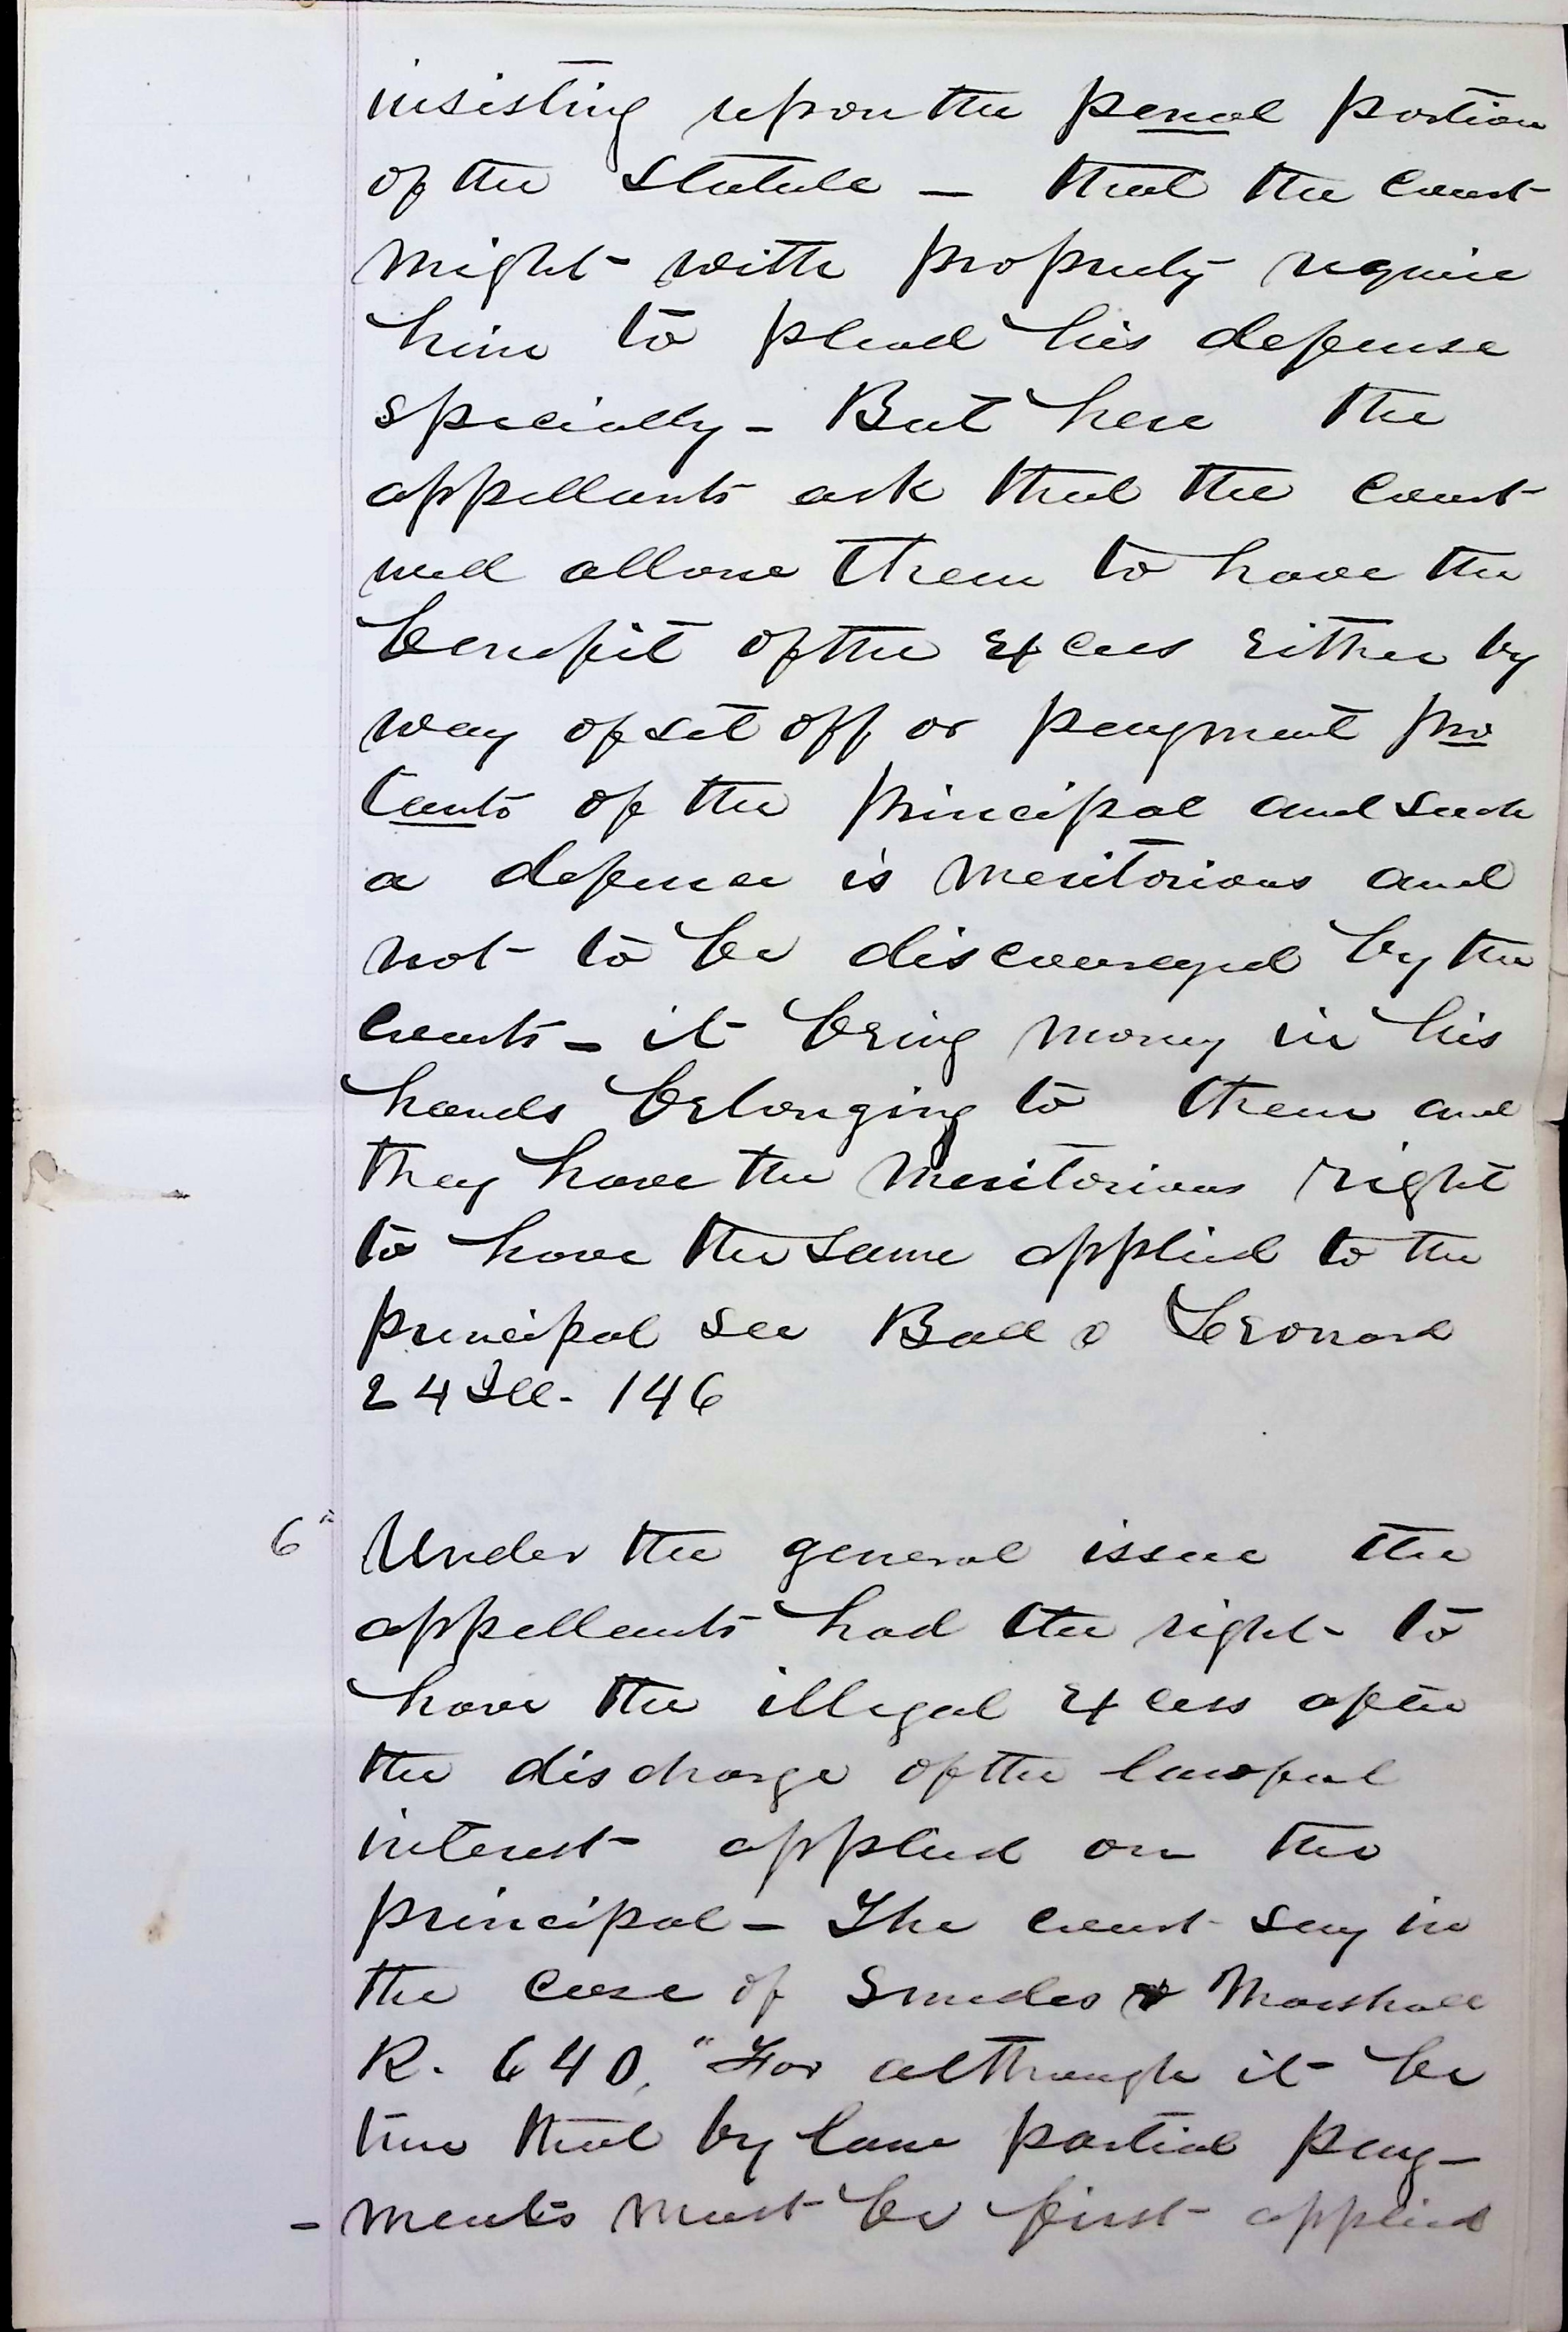 insisting upon the penal portion
of the statute – that the court
might with propriety require
him to plead his defense
specially – But here the
appellants ask that the court
will allow them to have the
benefit of the excess either by
way of set off or payment pro
tanto of the principal and such
a defense is meritorious and
not to be discouraged by the
courts – it being money in his
hands belonging to them and
they have the meritorious right
to have the same applied to the
principal see Ball v Leonard
24 Ill. 146
6" Under the general issue the
appellants had the right to
have the illegal excess after
the discharge of the lawful
interest applied on the
principal – The court say in
the case of Smedes & Marshall
R. 640, "For although it be
true that by law partial pay–
–ments must be first applied